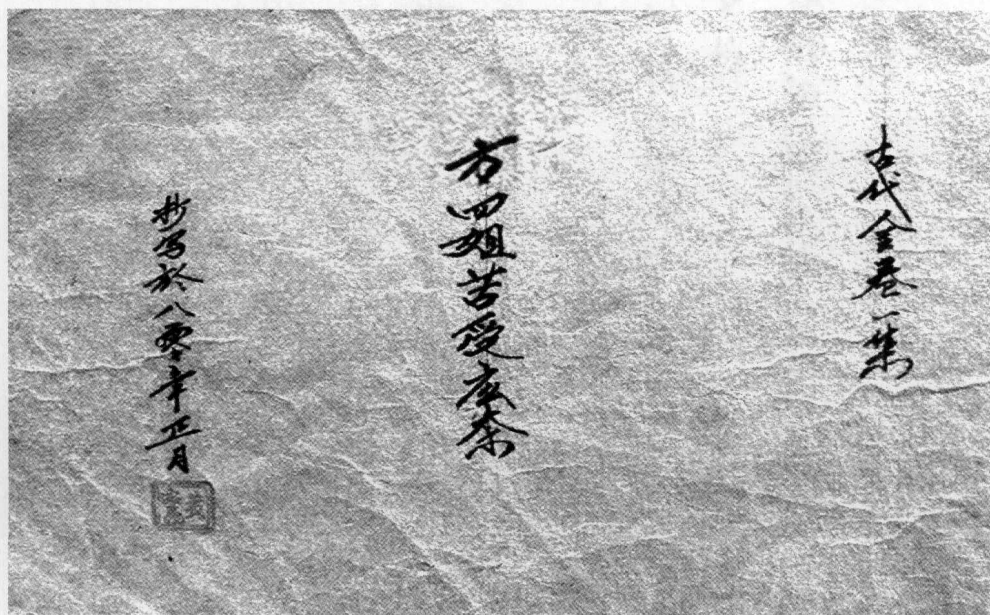 古代全卷一集
方四姐苦受
抄写於八零年正月